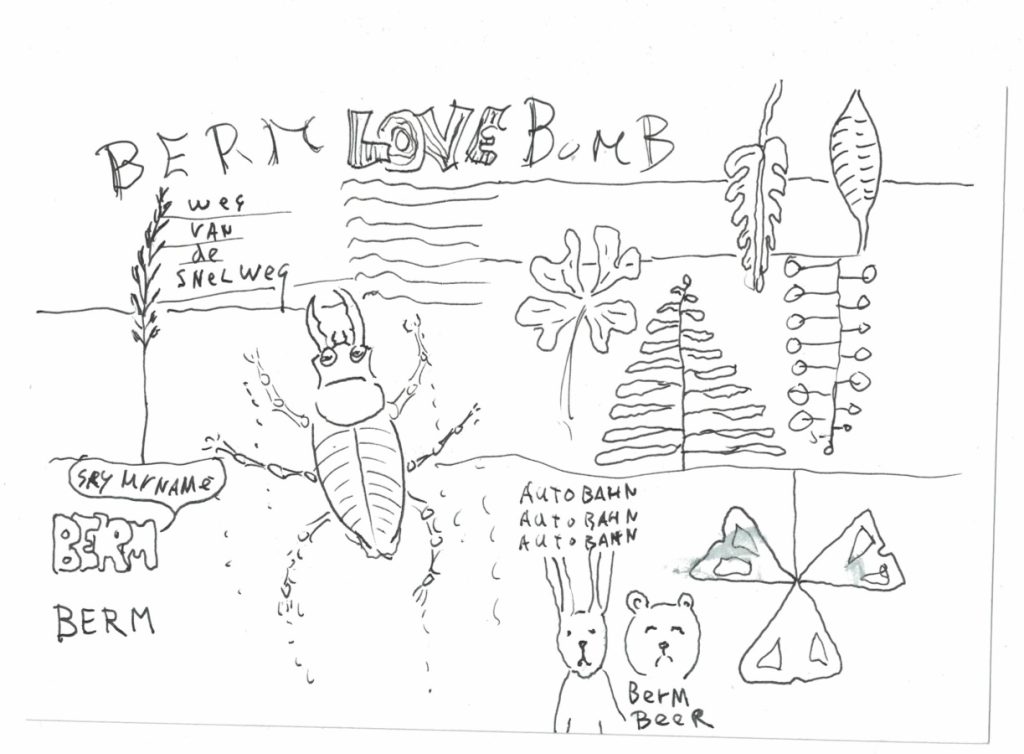 BERM LOVE BOMB
weg
VAN
de
SNELWEG
SAY MY NAME
BERM
BERM
AUTOBAHN
AUTOBAHN
AUTOBAHN
BerM
BeeR